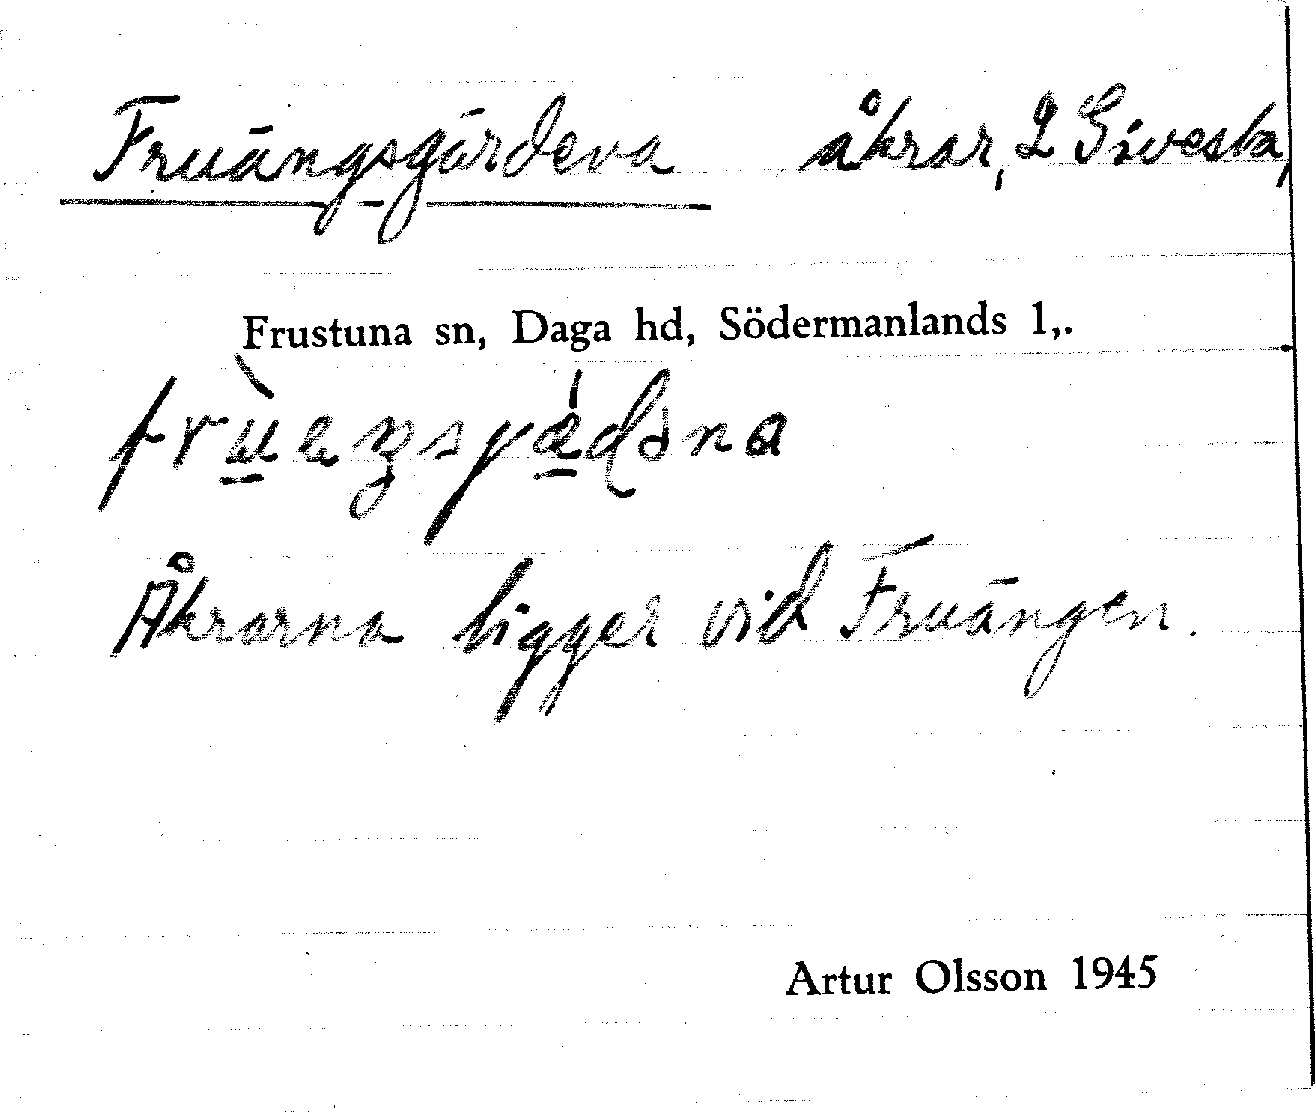 Fruängsgärdena åkrar, 2 Sivesta,
Frustuna sn, Daga hd, Södermanlands l,.
Åkrarna ligger vid Fruängen.
Artur Olsson 1945